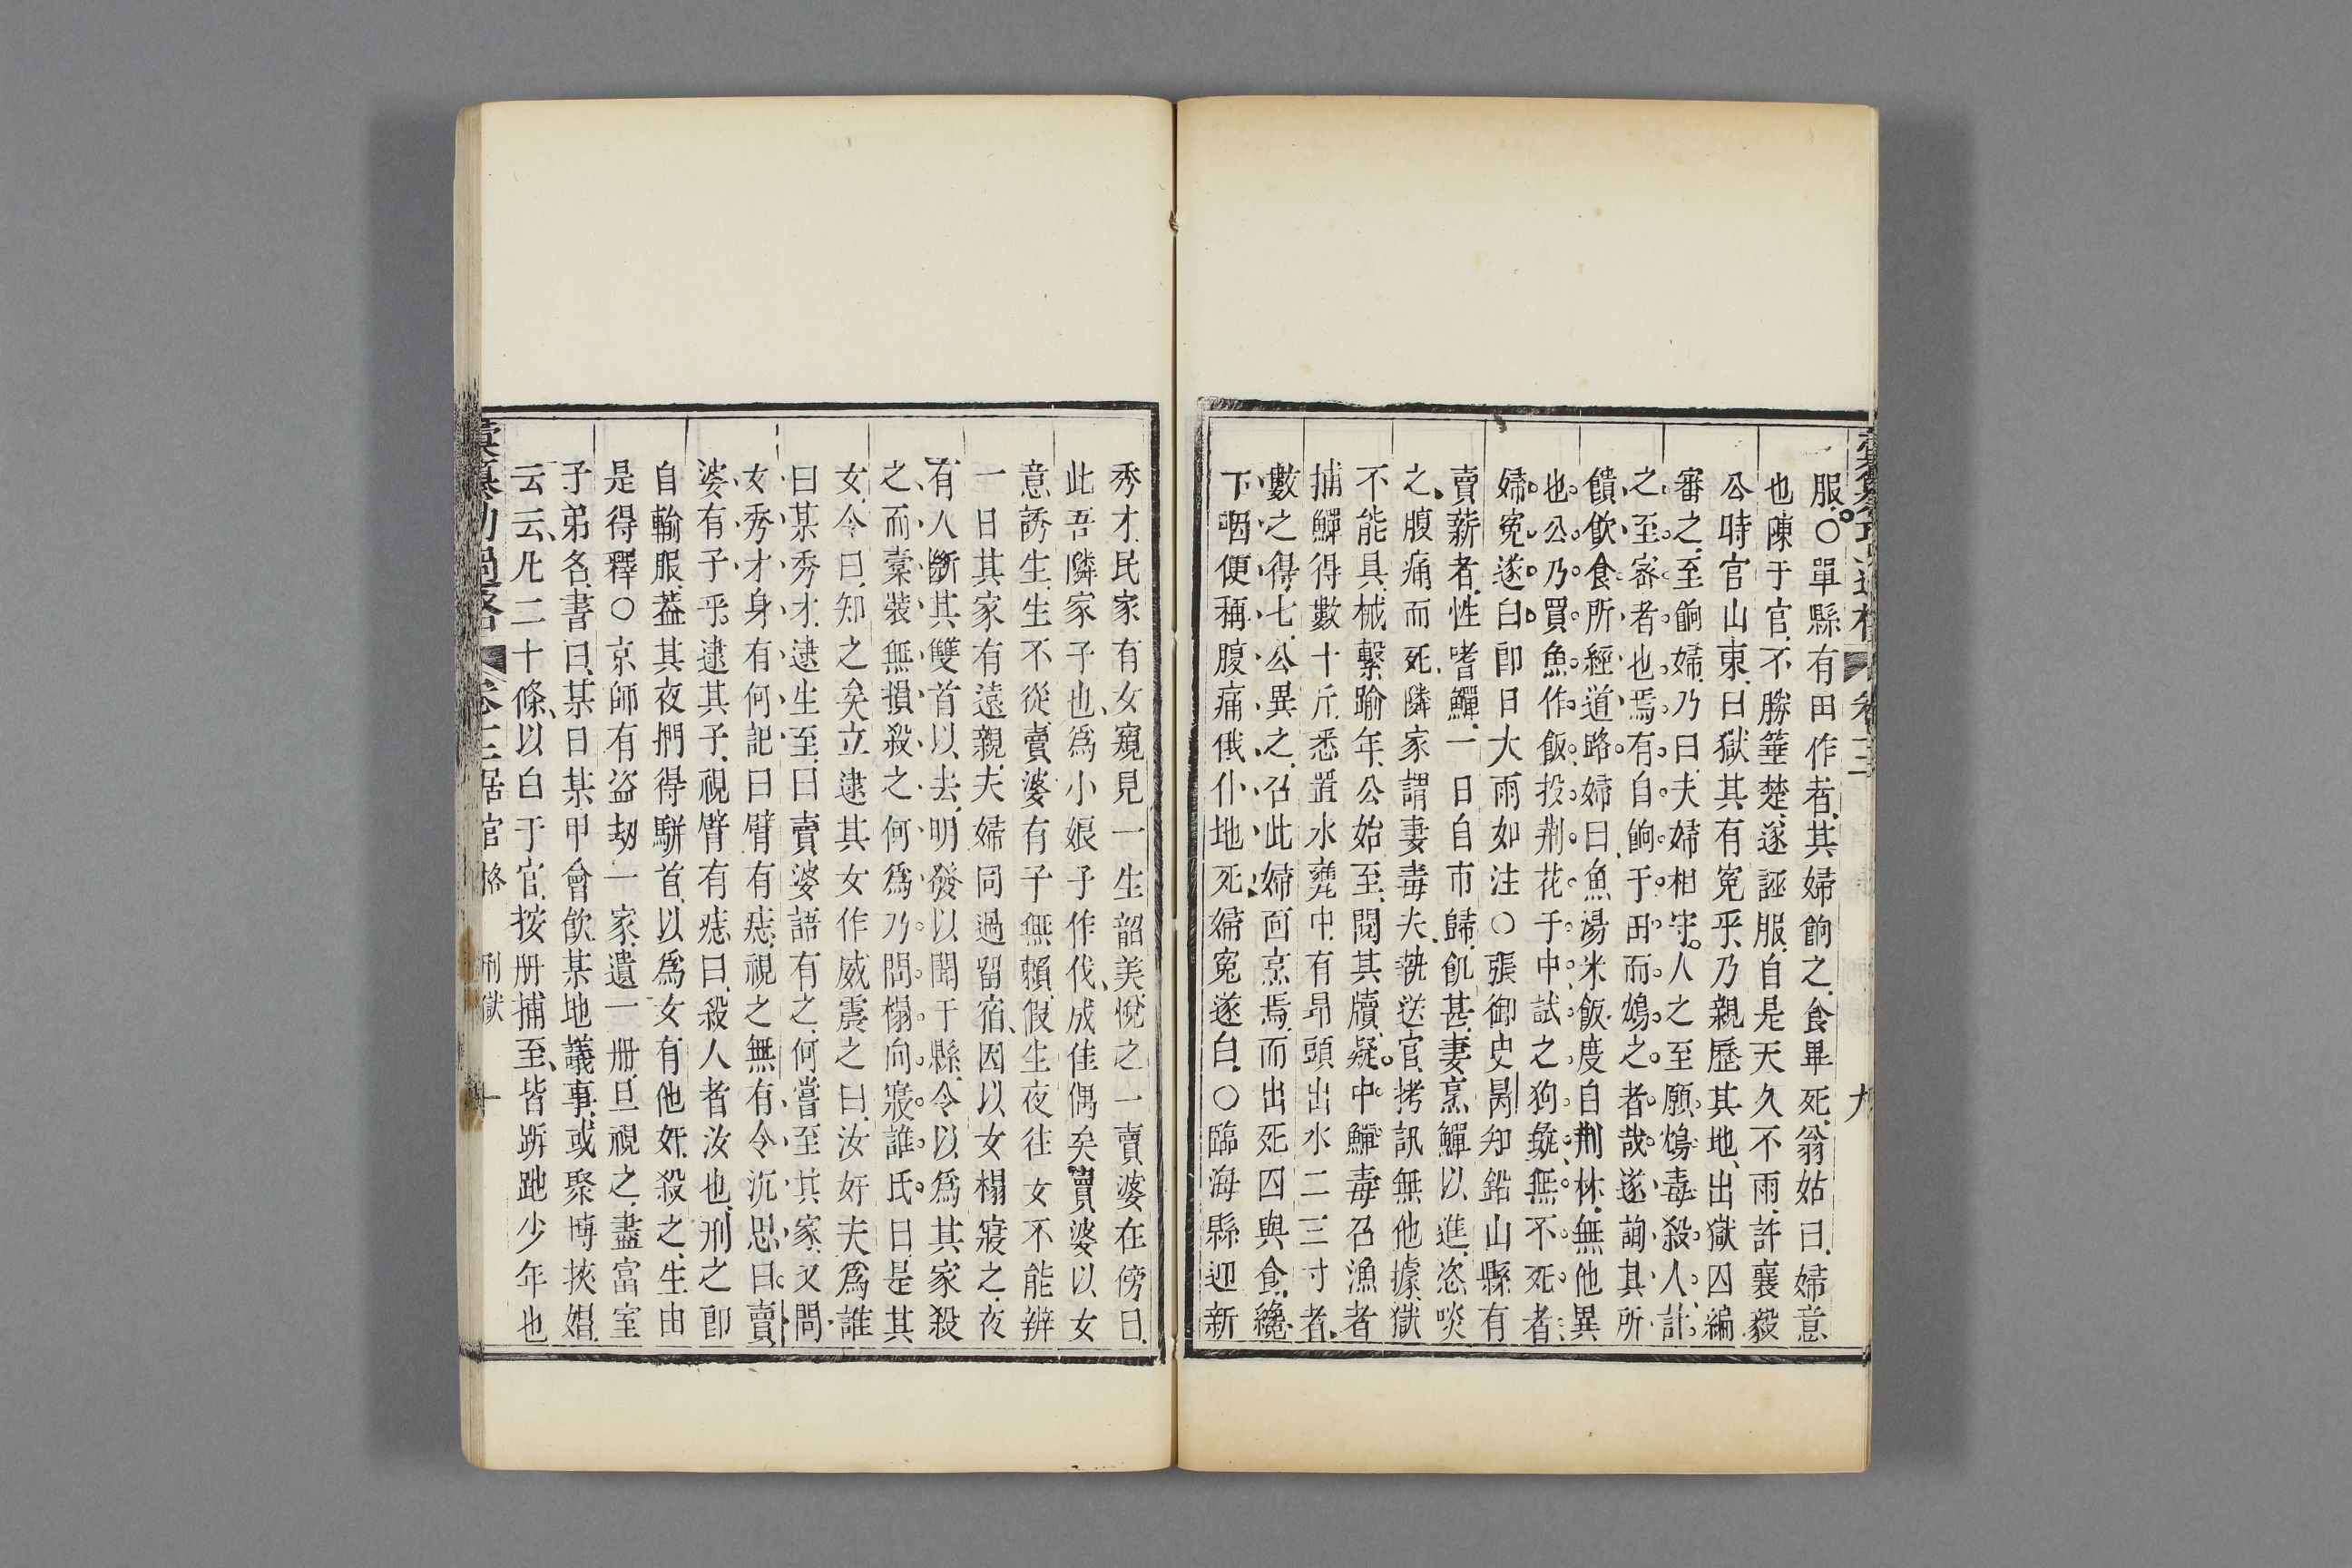 服○單縣有田作者其婦餉之食畢死翁姑曰婦意
也陳于官不勝箠楚遂誣服自是天久不雨許襄毅
公時官山東曰獄其有冤乎乃親歷其地出獄囚編
審之至餉婦乃曰夫婦相守人之至願鴆毒殺人計
之至密者也焉有自餉于田而鴆之者哉遂詢其所
饋飲食所經道路婦曰魚湯米飯度自荆林無他異
也公乃買魚作飯投荆花于中試之狗彘無不死者
婦冤遂白即日大雨如注○張御史昺知鉛山縣有
賣薪者性嗜鱓一日自市歸飢甚妻烹鱓以進恣啖
之腹痛而死隣家謂妻毒夫執送官拷訊無他據獄
不能具械繫踰年公始至閱其牘疑中鱓毒召漁者
捕鱓得數十斤悉置水甕中有昂頭出水二三寸者
數之得七公異之召此婦面烹焉而出死囚與食纔
下咽便稱腹痛俄仆地死婦冤遂白○臨海縣迎新
卷三
九
秀才民家有女窺見一生韶美悅之一賣婆在傍曰
此吾隣家子也為小娘子作伐成佳偶矣賣婆以女
意誘生生不從賣婆有子無賴假生夜往女不能辨
一日其家有遠親夫婦同過留宿因以女榻寢之夜
有人斷其雙首以去明發以聞于縣令以為其家殺
之而橐裝無損殺之何為乃問榻向寢誰氏曰是其
女令曰知之矣立逮其女作威震之曰汝奸夫為誰
曰某秀才逮生至曰賣婆語有之何嘗至其家又問
女秀才身有何記曰臂有痣視之無有令沉思曰賣
婆有子乎逮其子視臂有痣曰殺人者汝也刑之即
自輸服葢其夜捫得駢首以為女有他奸殺之生由
是得釋○京師有盜刼一家遺一冊旦視之盡富室
子弟名書曰某日某甲會飲某地議事或聚博挾娼
云云凡二十條以白于官按册捕至皆跅跎少年也
卷三居官格 刑獄 十